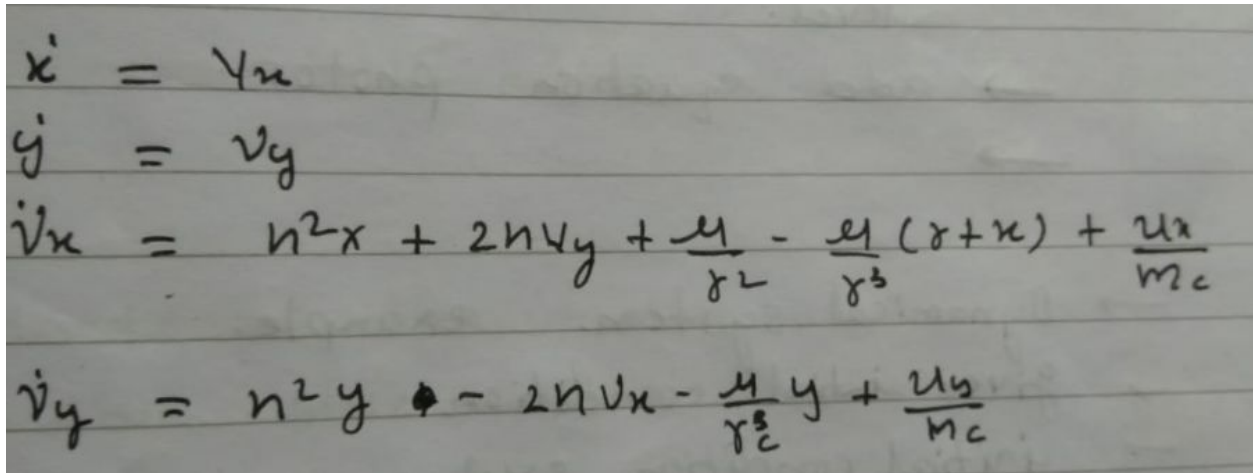 ẋ = Vx
ẏ = Vy
V̇x = n²x + 2nVy + μ/r² - μ/r³ (r+x) + ux/mc
V̇y = n²y - 2nVx - μ/rc³ y + uy/mc